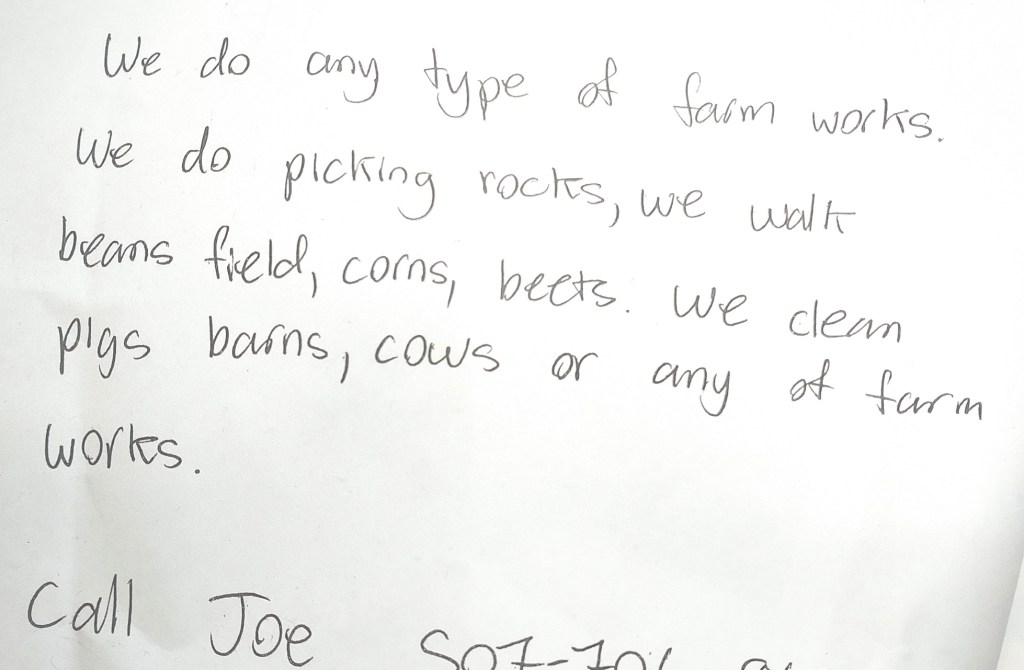 We do any type of farm works.
We do picking rocks, we walk
beans field, corns, beets. We clean
pigs barns, cows or any of farm
works.
Call Joe